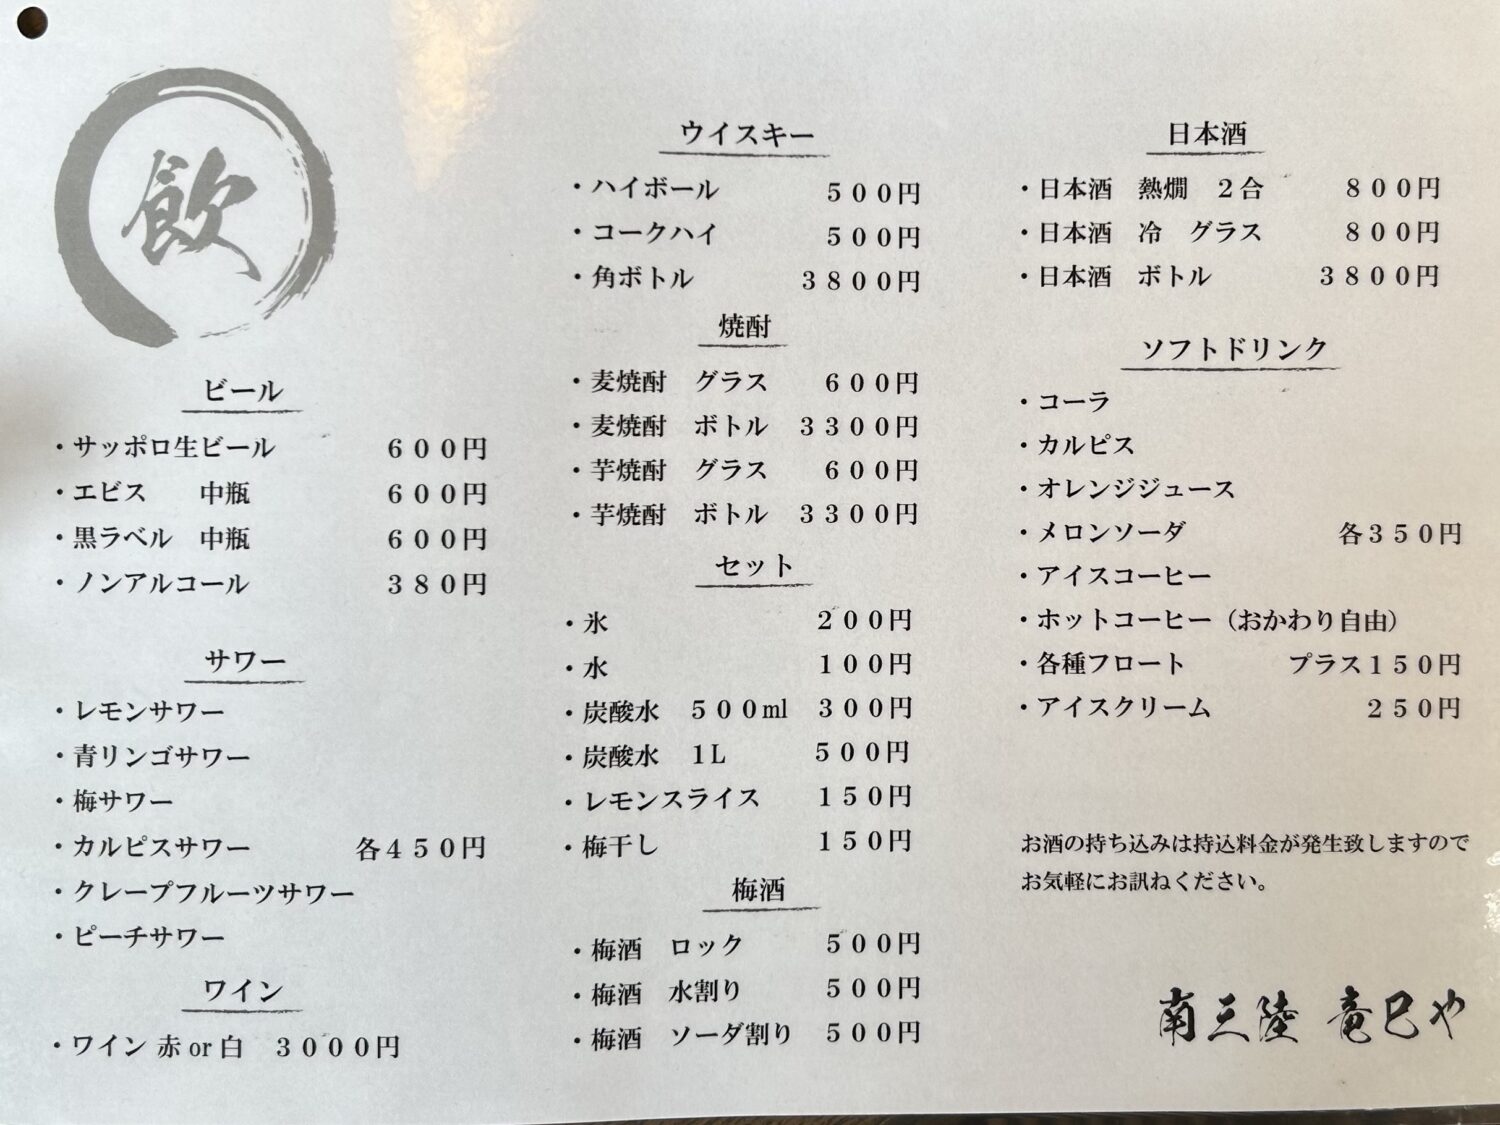 飲
ビール
・サッポロ生ビール ６００円
・エビス 中瓶 ６００円
・黒ラベル 中瓶 ６００円
・ノンアルコール ３８０円
サワー
・レモンサワー
・青リンゴサワー
・梅サワー
・カルピスサワー 各４５０円
・クレープフルーツサワー
・ピーチサワー
ワイン
・ワイン 赤 or 白 ３０００円
ウイスキー
・ハイボール ５００円
・コークハイ ５００円
・角ボトル ３８００円
焼酎
・麦焼酎 グラス ６００円
・麦焼酎 ボトル ３３００円
・芋焼酎 グラス ６００円
・芋焼酎 ボトル ３３００円
セット
・氷 ２００円
・水 １００円
・炭酸水 ５００ml ３００円
・炭酸水 １L ５００円
・レモンスライス １５０円
・梅干し １５０円
梅酒
・梅酒 ロック ５００円
・梅酒 水割り ５００円
・梅酒 ソーダ割り ５００円
日本酒
・日本酒 熱燗 ２合 ８００円
・日本酒 冷 グラス ８００円
・日本酒 ボトル ３８００円
ソフトドリンク
・コーラ
・カルピス
・オレンジジュース
・メロンソーダ 各３５０円
・アイスコーヒー
・ホットコーヒー（おかわり自由）
・各種フロート プラス１５０円
・アイスクリーム ２５０円
お酒の持ち込みは持込料金が発生致しますので
お気軽にお訊ねください。
南三陸 竜巳や